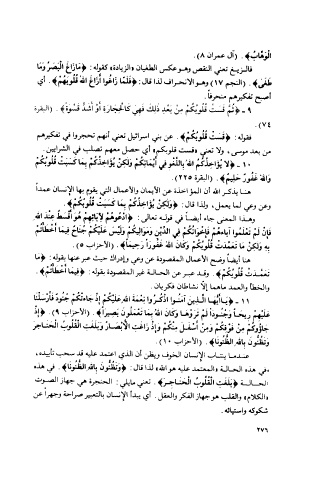 الوَهَّابُ﴾. (آل عمران ٨).
فالزيغ تعني النقص وهو عكس الطغيان «الزيادة» كقوله: ﴿مَا زَاغَ الْبَصَرُ وَمَا
طَغَى﴾. (النجم ١٧) وهو الانحراف لذا قال: ﴿فَلَمَّا زَاغُوا أَزَاغَ اللَّهُ قُلُوبَهُمْ﴾. أي
أصبح تفكيرهم منحرفاً.
٩ ـ ﴿ثُمَّ قَسَتْ قُلُوبُكُمْ مِنْ بَعْدِ ذَلِكَ فَهِيَ كَالْحِجَارَةِ أَوْ أَشَدُّ قَسْوَةً﴾. (البقرة
٧٤).
فقوله: ﴿قَسَتْ قُلُوبُكُمْ﴾. عن بني اسرائيل تعني أنهم تحجروا في تفكيرهم
من بعد موسى، ولا تعني «قست قلوبكم» أي حصل معهم تصلب في الشرايين.
١٠ ـ ﴿لَا يُؤَاخِذُكُمُ اللَّهُ بِاللَّغْوِ فِي أَيْمَانِكُمْ وَلَكِنْ يُؤَاخِذُكُمْ بِمَا كَسَبَتْ قُلُوبُكُمْ
وَاللَّهُ غَفُورٌ حَلِيمٌ﴾. (البقرة ٢٢٥).
هنا يذكر الله أن المؤاخذة عن الأيمان والأعمال التي يقوم بها الإنسان عمداً
وعن وعي لما يعمل، ولذا قال: ﴿وَلَكِنْ يُؤَاخِذُكُمْ بِمَا كَسَبَتْ قُلُوبُكُمْ﴾.
وهذا المعنى جاء أيضاً في قوله تعالى: ﴿ادْعُوهُمْ لِآبَائِهِمْ هُوَ أَقْسَطُ عِنْدَ اللَّهِ
فَإِنْ لَمْ تَعْلَمُوا آبَاءَهُمْ فَإِخْوَانُكُمْ فِي الدِّينِ وَمَوَالِيكُمْ وَلَيْسَ عَلَيْكُمْ جُنَاحٌ فِيمَا أَخْطَأْتُمْ
بِهِ وَلَكِنْ مَا تَعَمَّدَتْ قُلُوبُكُمْ وَكَانَ اللَّهُ غَفُوراً رَحِيماً﴾. (الأحزاب ٥).
هنا أيضاً وضح الأعمال المقصودة عن وعي وإدراك حيث عبر عنها بقوله: ﴿مَا
تَعَمَّدَتْ قُلُوبُكُمْ﴾. وقد عبر عن الحالة غير المقصودة بقوله: ﴿فِيمَا أَخْطَأْتُمْ﴾.
والخطأ والعمد ماهما إلّا نشاطان فكريان.
١١ ـ ﴿يَا أَيُّهَا الَّذِينَ آمَنُوا اذْكُرُوا نِعْمَةَ اللَّهِ عَلَيْكُمْ إِذْ جَاءَتْكُمْ جُنُودٌ فَأَرْسَلْنَا
عَلَيْهِمْ رِيحاً وَجُنُوداً لَمْ تَرَوْهَا وَكَانَ اللَّهُ بِمَا تَعْمَلُونَ بَصِيراً﴾. (الأحزاب ٩). ﴿إِذْ
جَاؤُوكُمْ مِنْ فَوْقِكُمْ وَمِنْ أَسْفَلَ مِنْكُمْ وَإِذْ زَاغَتِ الْأَبْصَارُ وَبَلَغَتِ الْقُلُوبُ الْحَنَاجِرَ
وَتَظُنُّونَ بِاللَّهِ الظُّنُونَا﴾. (الأحزاب ١٠).
عندما ينتاب الإنسان الخوف ويظن أن الذي اعتمد عليه قد سحب تأييده،
«في هذه الحالة «المعتمد عليه هو الله» لذا قال: ﴿وَتَظُنُّونَ بِاللَّهِ الظُّنُونَا﴾. في هذه
الحالة ﴿بَلَغَتِ الْقُلُوبُ الْحَنَاجِرَ﴾. تعني مايلي: الحنجرة هي جهاز الصوت
«الكلام» والقلب هو جهاز الفكر والعقل. أي يبدأ الإنسان بالتعبير صراحة وجهراً عن
شكوكه واستيائه.
٢٧٦